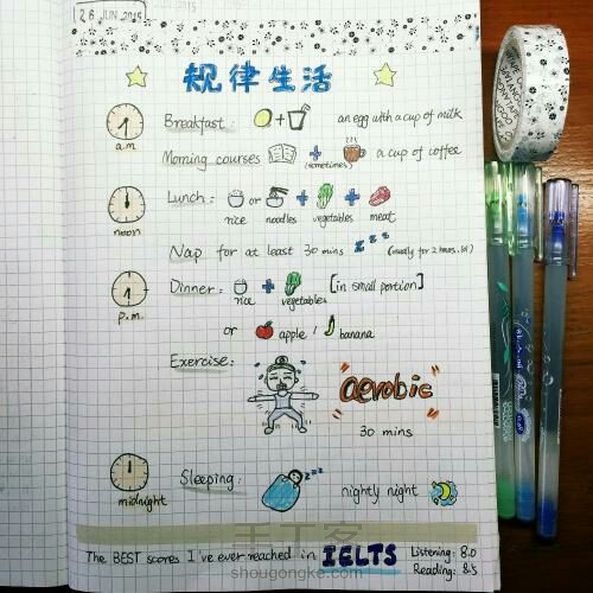 26 JUN 2015
规律生活
Breakfast: + an egg with a cup of milk
a.m
Morning courses + (sometimes) a cup of coffee
Lunch: or + +
rice noodles vegetables meat
noon
Nap for at least 30 mins z z z (usually for 2 hours..lol)
Dinner: + [in small portion]
rice vegetables
p.m.
or apple / banana
Exercise:
aerobic
30 mins
Sleeping: zzz nightly night
midnight
手工客
shougongke.com
The BEST scores I've ever reached in IELTS Listening: 8.0
Reading: 8.5